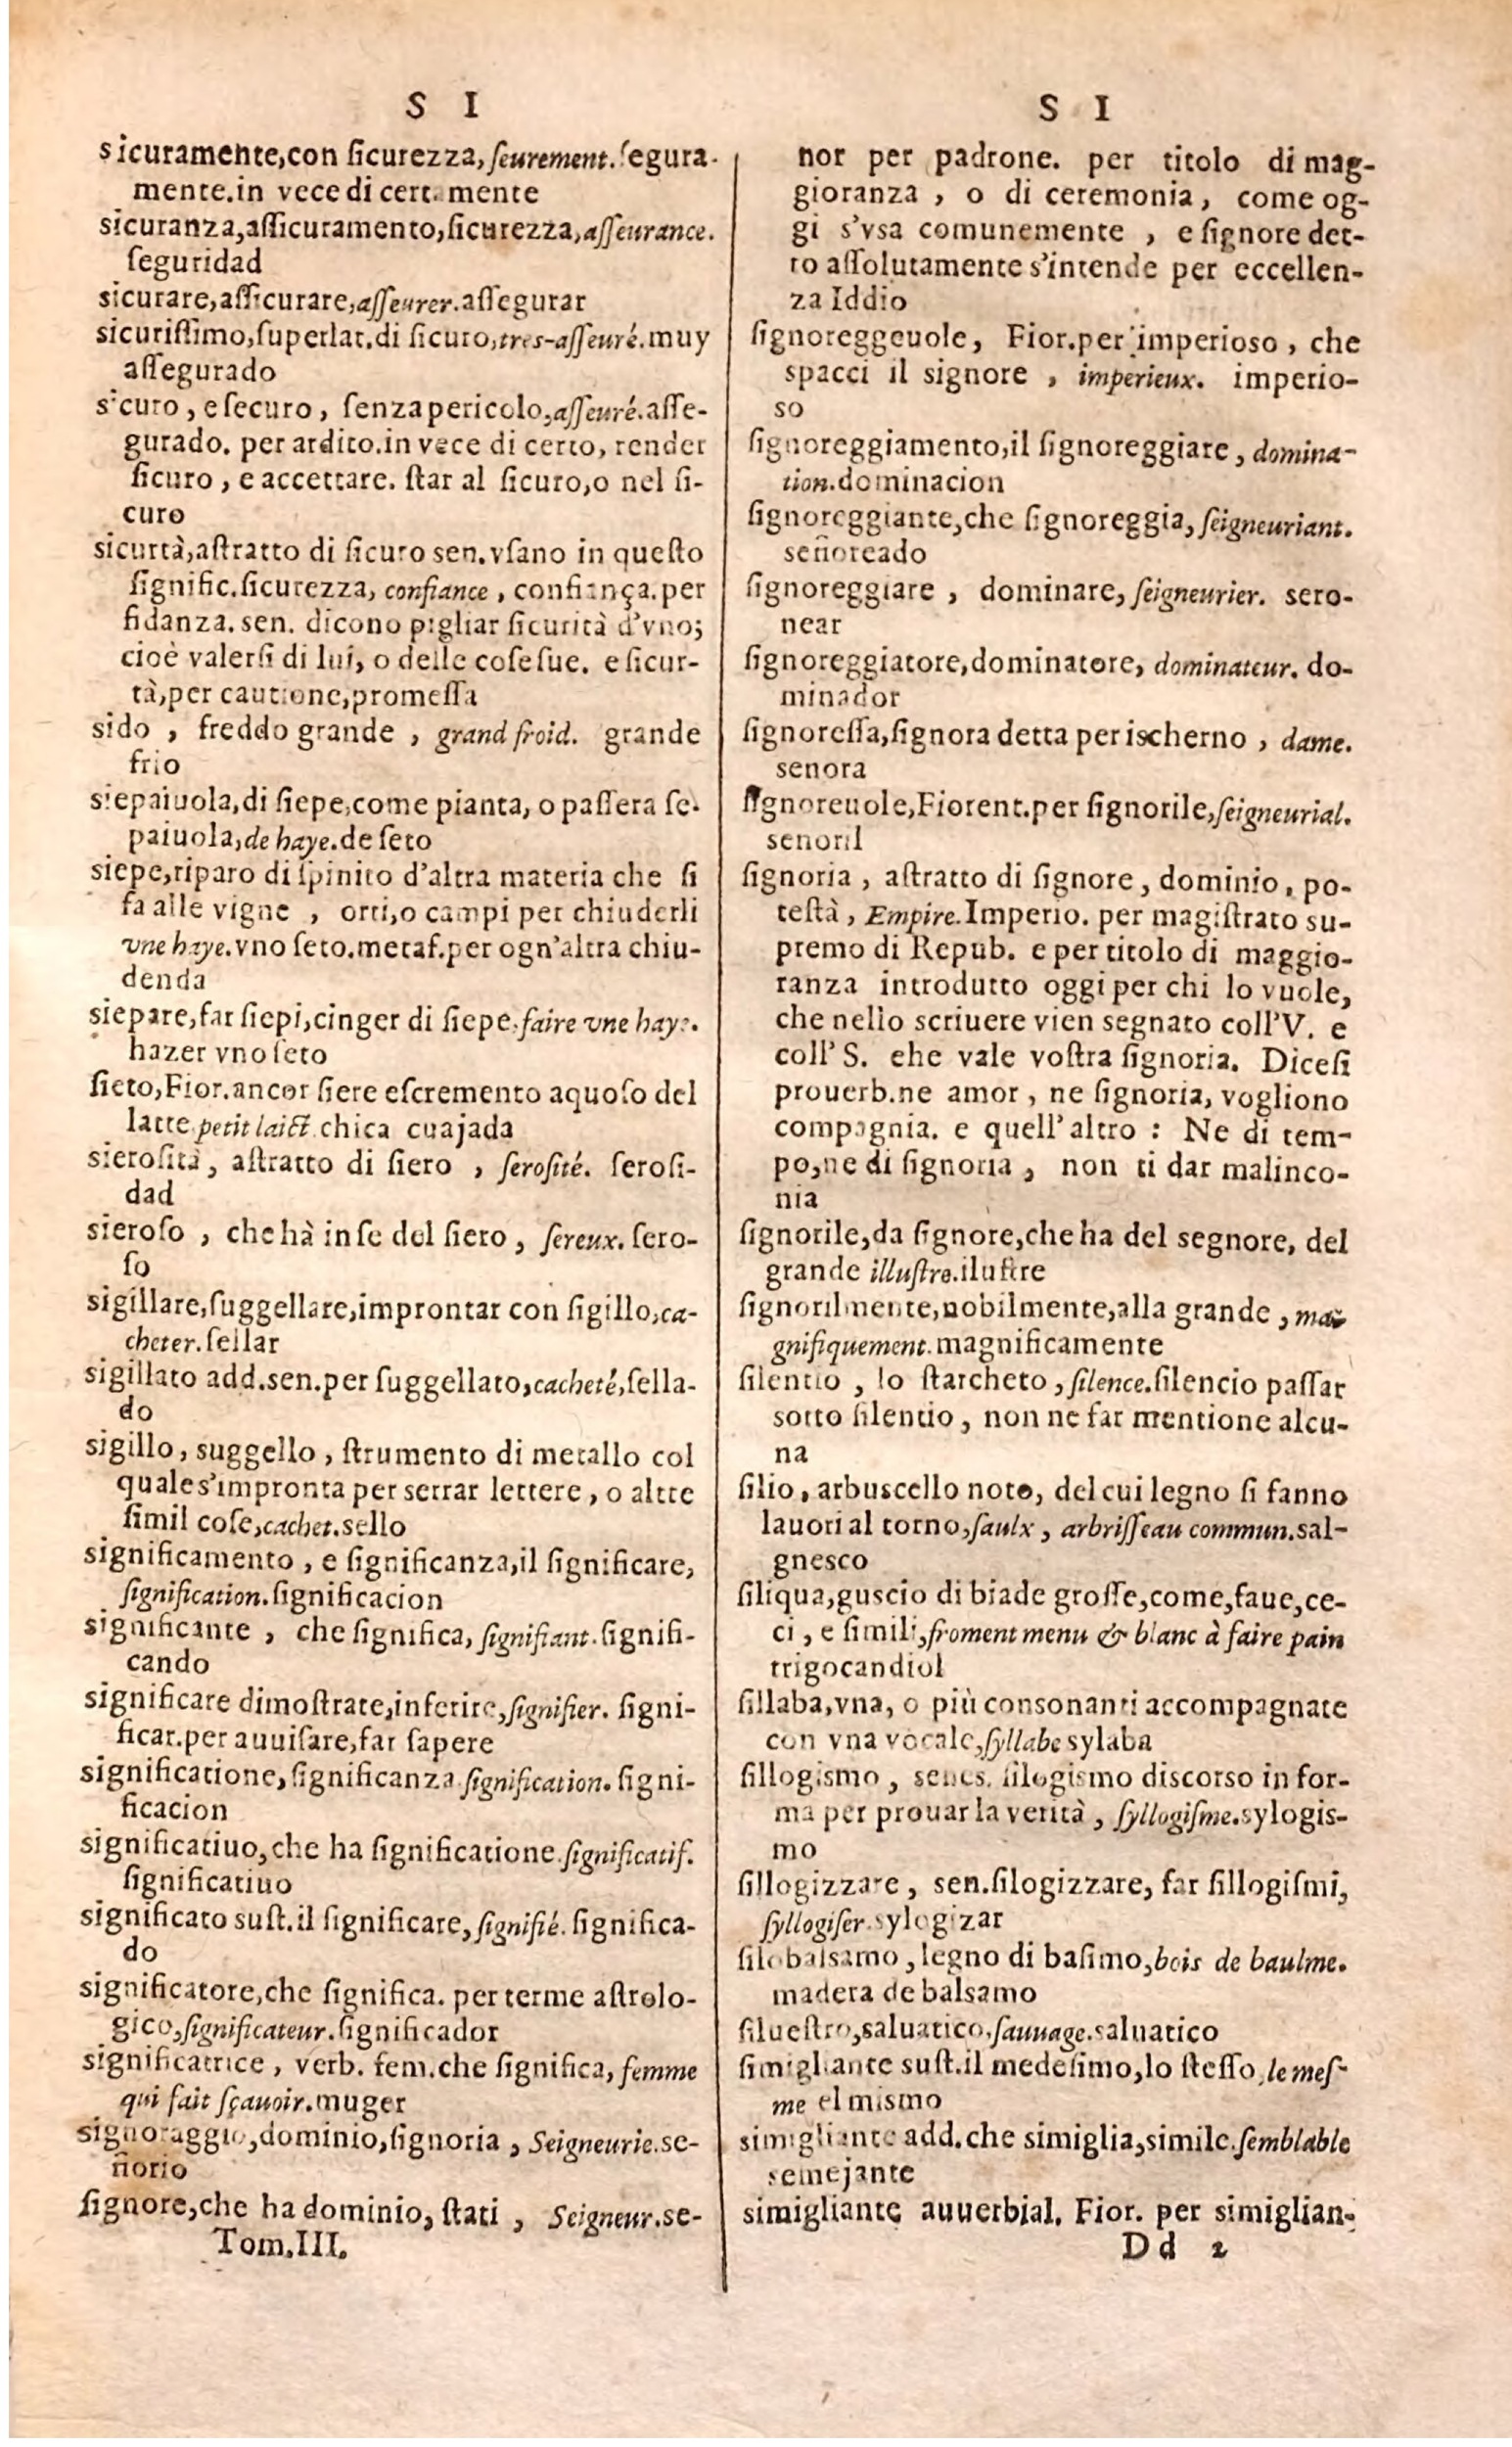 S I
sicuramente,con ſicurezza, ſeurement. ſegura-
mente.in vece di cert. mente
sicuranza,aſſicuramento,ſicurezza,aſſeurance.
ſeguridad
sicurare,aſſicurare,aſſeurer.aſſegurar
sicuriſſimo,ſuperlat.di ſicuro,tres-aſſeuré.muy
aſſegurado
sicuro , e ſecuro , ſenza pericolo,aſſeuré.aſſe-
gurado. per ardito.in vece di certo, render
ſicuro , e accettare. ſtar al ſicuro,o nel ſi-
curo
sicurtà,aſtratto di ſicuro sen.vſano in queſto
ſignific.ſicurezza, confiance , confiança.per
fidanza. sen. dicono pigliar ſicurità d'vno;
cioè valerſi di lui, o delle coſe ſue. e ſicur-
tà,per cautione,promeſſa
sido , freddo grande , grand froid. grande
frio
siepaiuola,di ſiepe,come pianta, o paſſera ſe-
paiuola,de haye.de ſeto
siepe,riparo di ſpinito d'altra materia che ſi
fa alle vigne , orti,o campi per chiuderli
vne haye.vno ſeto.metaf.per ogn'altra chiu-
denda
siepare,far ſiepi,cinger di ſiepe,faire vne haye.
hazer vno ſeto
ſieto,Fior.ancor ſiere eſcremento aquoſo del
latte petit laict chica cuajada
sieroſità , aſtratto di ſiero , ſeroſité. ſeroſi-
dad
sieroſo , che hà in ſe del ſiero , ſereux. ſero-
ſo
sigillare,ſuggellare,improntar con ſigillo,ca-
cheter.ſellar
sigillato add.sen.per ſuggellato,cacheté,ſella-
do
sigillo, suggello , ſtrumento di metallo col
quale s'impronta per serrar lettere , o altre
ſimil coſe,cachet.sello
significamento , e ſignificanza,il ſignificare,
ſignification.ſignificacion
significante , che ſignifica, ſignifiant.ſignifi-
cando
significare dimoſtrate,inferire,ſignifier. ſigni-
ficar.per auuiſare,far ſapere
significatione, ſignificanza ſignification. ſigni-
ficacion
significatiuo,che ha ſignificatione.ſignificatif.
ſignificatiuo
significato suſt.il ſignificare,ſignifié. ſignifica-
do
significatore,che ſignifica. per terme aſtrolo-
gico,ſignificateur.ſignificador
significatrice , verb. fem.che ſignifica, femme
qui fait ſçauoir.muger
signoraggio,dominio,ſignoria , Seigneurie.se-
ñorio
ſignore,che ha dominio, ſtati , Seigneur.se-
Tom.III.
S I
nor per padrone. per titolo di mag-
gioranza , o di ceremonia, come og-
gi s'vsa comunemente , e ſignore det-
to aſſolutamente s'intende per eccellen-
za Iddio
ſignoreggeuole, Fior.per imperioso , che
spacci il signore , imperieux. imperio-
so
ſignoreggiamento,il ſignoreggiare , domina-
tion.dominacion
ſignoreggiante,che ſignoreggia, ſeigneuriant.
señoreado
ſignoreggiare , dominare, ſeigneurier. sero-
near
ſignoreggiatore,dominatore, dominateur. do-
minador
ſignoreſſa,ſignora detta per ischerno , dame.
senora
ſignoreuole,Fiorent.per ſignorile,ſeigneurial.
senoril
ſignoria , aſtratto di ſignore , dominio , po-
teſtà , Empire.Imperio. per magiſtrato su-
premo di Repub. e per titolo di maggio-
ranza introdutto oggi per chi lo vuole,
che nello scriuere vien segnato coll'V. e
coll' S. ehe vale voſtra ſignoria. Diceſi
prouerb.ne amor , ne ſignoria, vogliono
compagnia. e quell' altro : Ne di tem-
po,ne di ſignoria , non ti dar malinco-
nia
ſignorile,da ſignore,che ha del segnore, del
grande illuſtre.iluſtre
ſignorilmente,nobilmente,alla grande , ma-
gnifiquement.magnificamente
ſilentio , lo ſtarcheto , ſilence.ſilencio paſſar
sotto ſilentio , non ne far mentione alcu-
na
ſilio , arbuscello noto, del cui legno ſi fanno
lauori al torno,ſaulx , arbriſſeau commun.sal-
gnesco
ſiliqua,guscio di biade groſſe,come,faue,ce-
ci , e ſimili,froment menu & blanc à faire pain
trigocandiol
ſillaba,vna, o più consonanti accompagnate
con vna vocale,ſyllabe sylaba
ſillogismo , senes. ſilogismo discorso in for-
ma per prouar la verità , ſyllogiſme.sylogis-
mo
ſillogizzare , sen.ſilogizzare, far ſillogiſmi,
ſyllogiſer.sylogizar
ſilobalsamo , legno di baſimo,bois de baulme.
madera de balsamo
ſilueſtro,saluatico,ſauuage.saluatico
ſimigliante suſt.il medeſimo,lo ſteſſo,le meſ-
me el mismo
simigliante add.che simiglia,simile.ſemblable
semejante
simigliante auuerbial. Fior. per simiglian-
D d 2